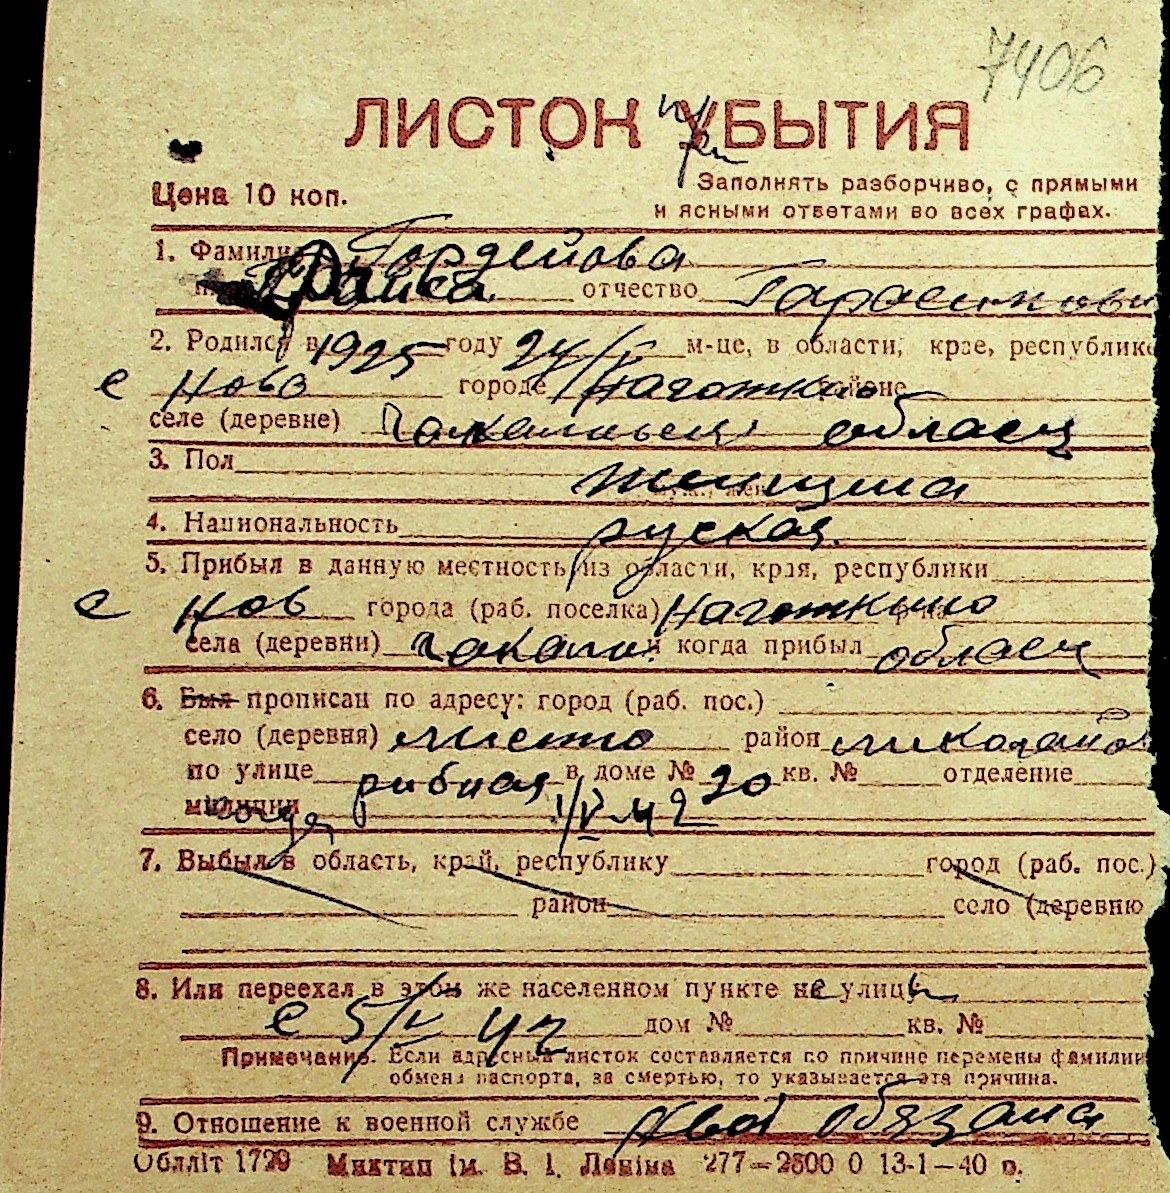 7406
ЛИСТОК УБЫТИЯ
Цена 10 коп.
Заполнять разборчиво, с прямыми
и ясными ответами во всех графах.
1. Фамилия Гордейова
Раиса отчество Гарасимовн
2. Родился в 1925 году 24/V м-це, в области, крае, республике
с Ново городе Наготкино районе
селе (деревне) облаец
3. Пол женщина
4. Национальность руская.
5. Прибыл в данную местность из области, края, республики
с Нов города (раб. поселка) Наготкино
села (деревни) и когда прибыл облаец
6. Был прописан по адресу: город (раб. пос.)
село (деревня) место район николайов
по улице рибная в доме № 20 кв. № отделение
милиции 1/V 42
7. Выбыл в область, край, республику город (раб. пос.)
район село (деревню
8. Или переехал в этом же населенном пункте не улицы
с 5/V 42 дом № кв. №
Примечание. Если адресный листок составляется по причине перемены фамилии
обмена паспорта, за смертью, то указывается эта причина.
9. Отношение к военной службе обязана
Обллiт 1729 Миктип iм. В. I. Ленiна 277—2500 0 13-1—40 р.